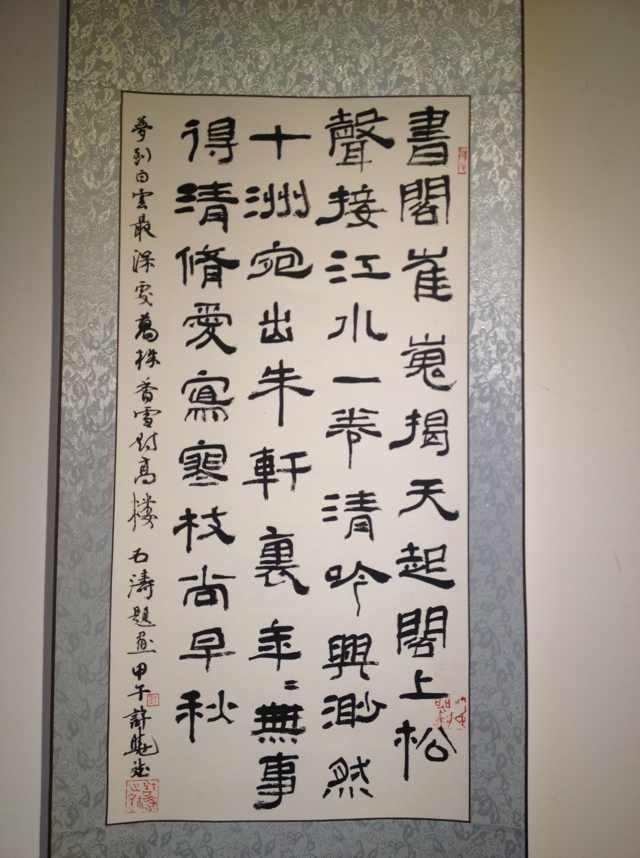 書閣崔嵬揭天起閣上松
聲接江水一卷清吟興渺然
十洲宛出朱軒裏年〻無事
得清脩愛寫寒枝尚早秋
夢到白雲最深處萬株香雪對高樓 石濤題畫 甲午 許